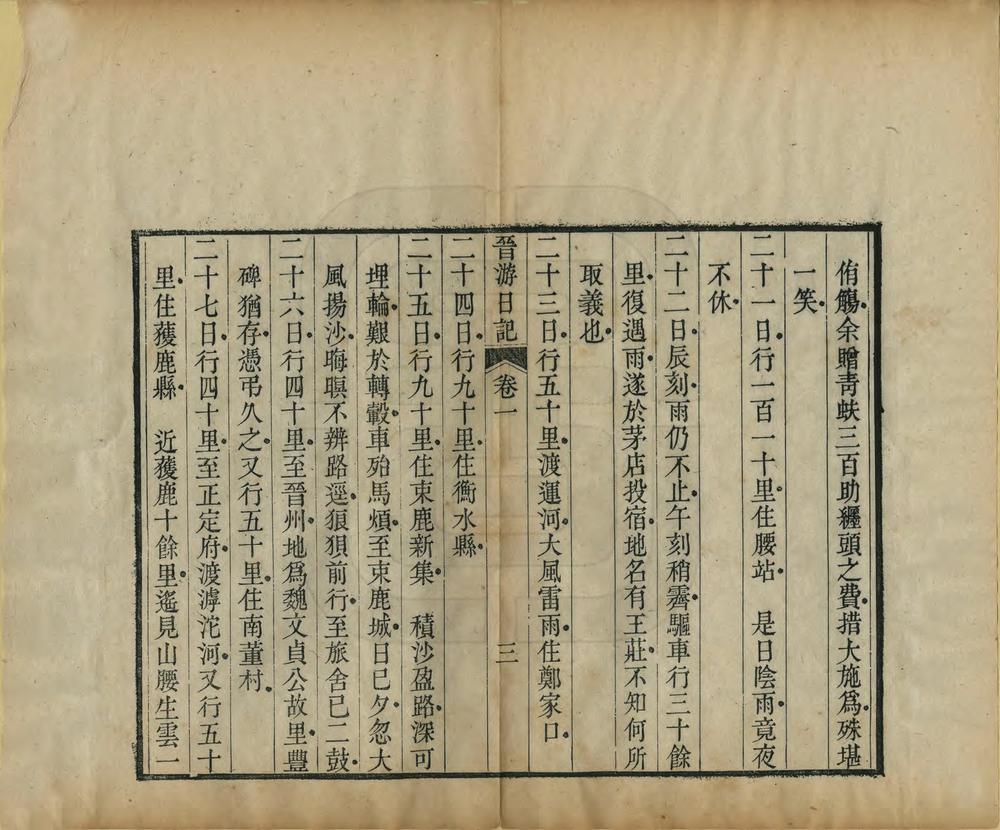 侑觴余贈青蚨三百助纒頭之費措大施爲殊堪
一笑
二十一日行一百一十里住腰站　是日陰雨竟夜
不休
二十二日辰刻雨仍不止午刻稍霽驅車行三十餘
里復遇雨遂於茅店投宿地名有王莊不知何所
取義也
二十三日行五十里渡運河大風雷雨住鄭家口
晉游日記　卷一　三
二十四日行九十里住衡水縣
二十五日行九十里住束鹿新集　積沙盈路深可
埋輪艱於轉轂車殆馬煩至束鹿城日已夕忽大
風揚沙晦暝不辨路逕狼狽前行至旅舍已二鼓
二十六日行四十里至晉州地爲魏文貞公故里豐
碑猶存憑弔久之又行五十里住南董村
二十七日行四十里至正定府渡滹沱河又行五十
里住獲鹿縣　近獲鹿十餘里遙見山腰生雲一